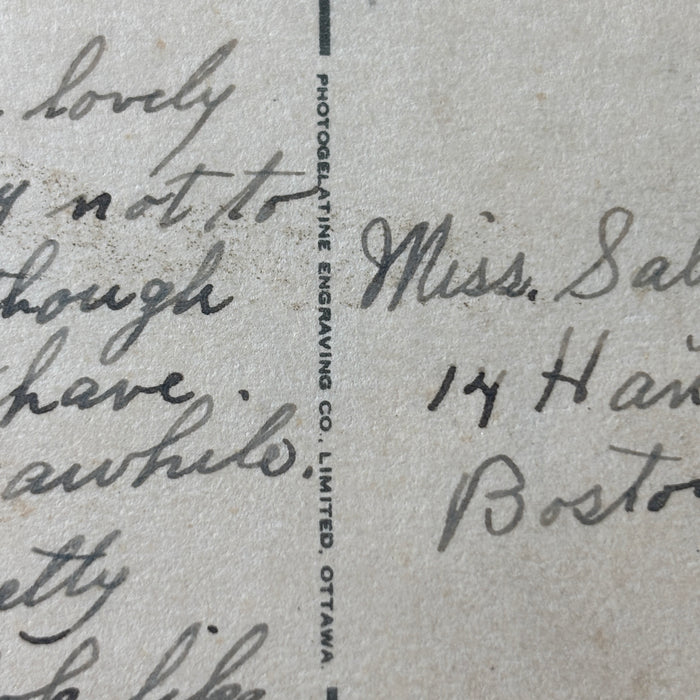 lovely
not to
though
have.
awhile.
PHOTOGELATINE ENGRAVING CO., LIMITED, OTTAWA
Miss. Sal
14 Han
Bosto